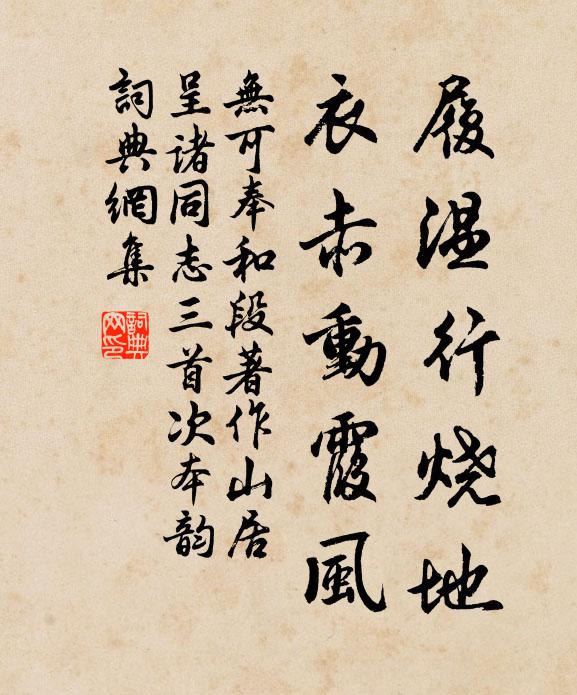 履温行烧地
衣赤動霞風
無可奉和段著作山居
呈诸同志三首次本韵
詞典網集
詞典網印